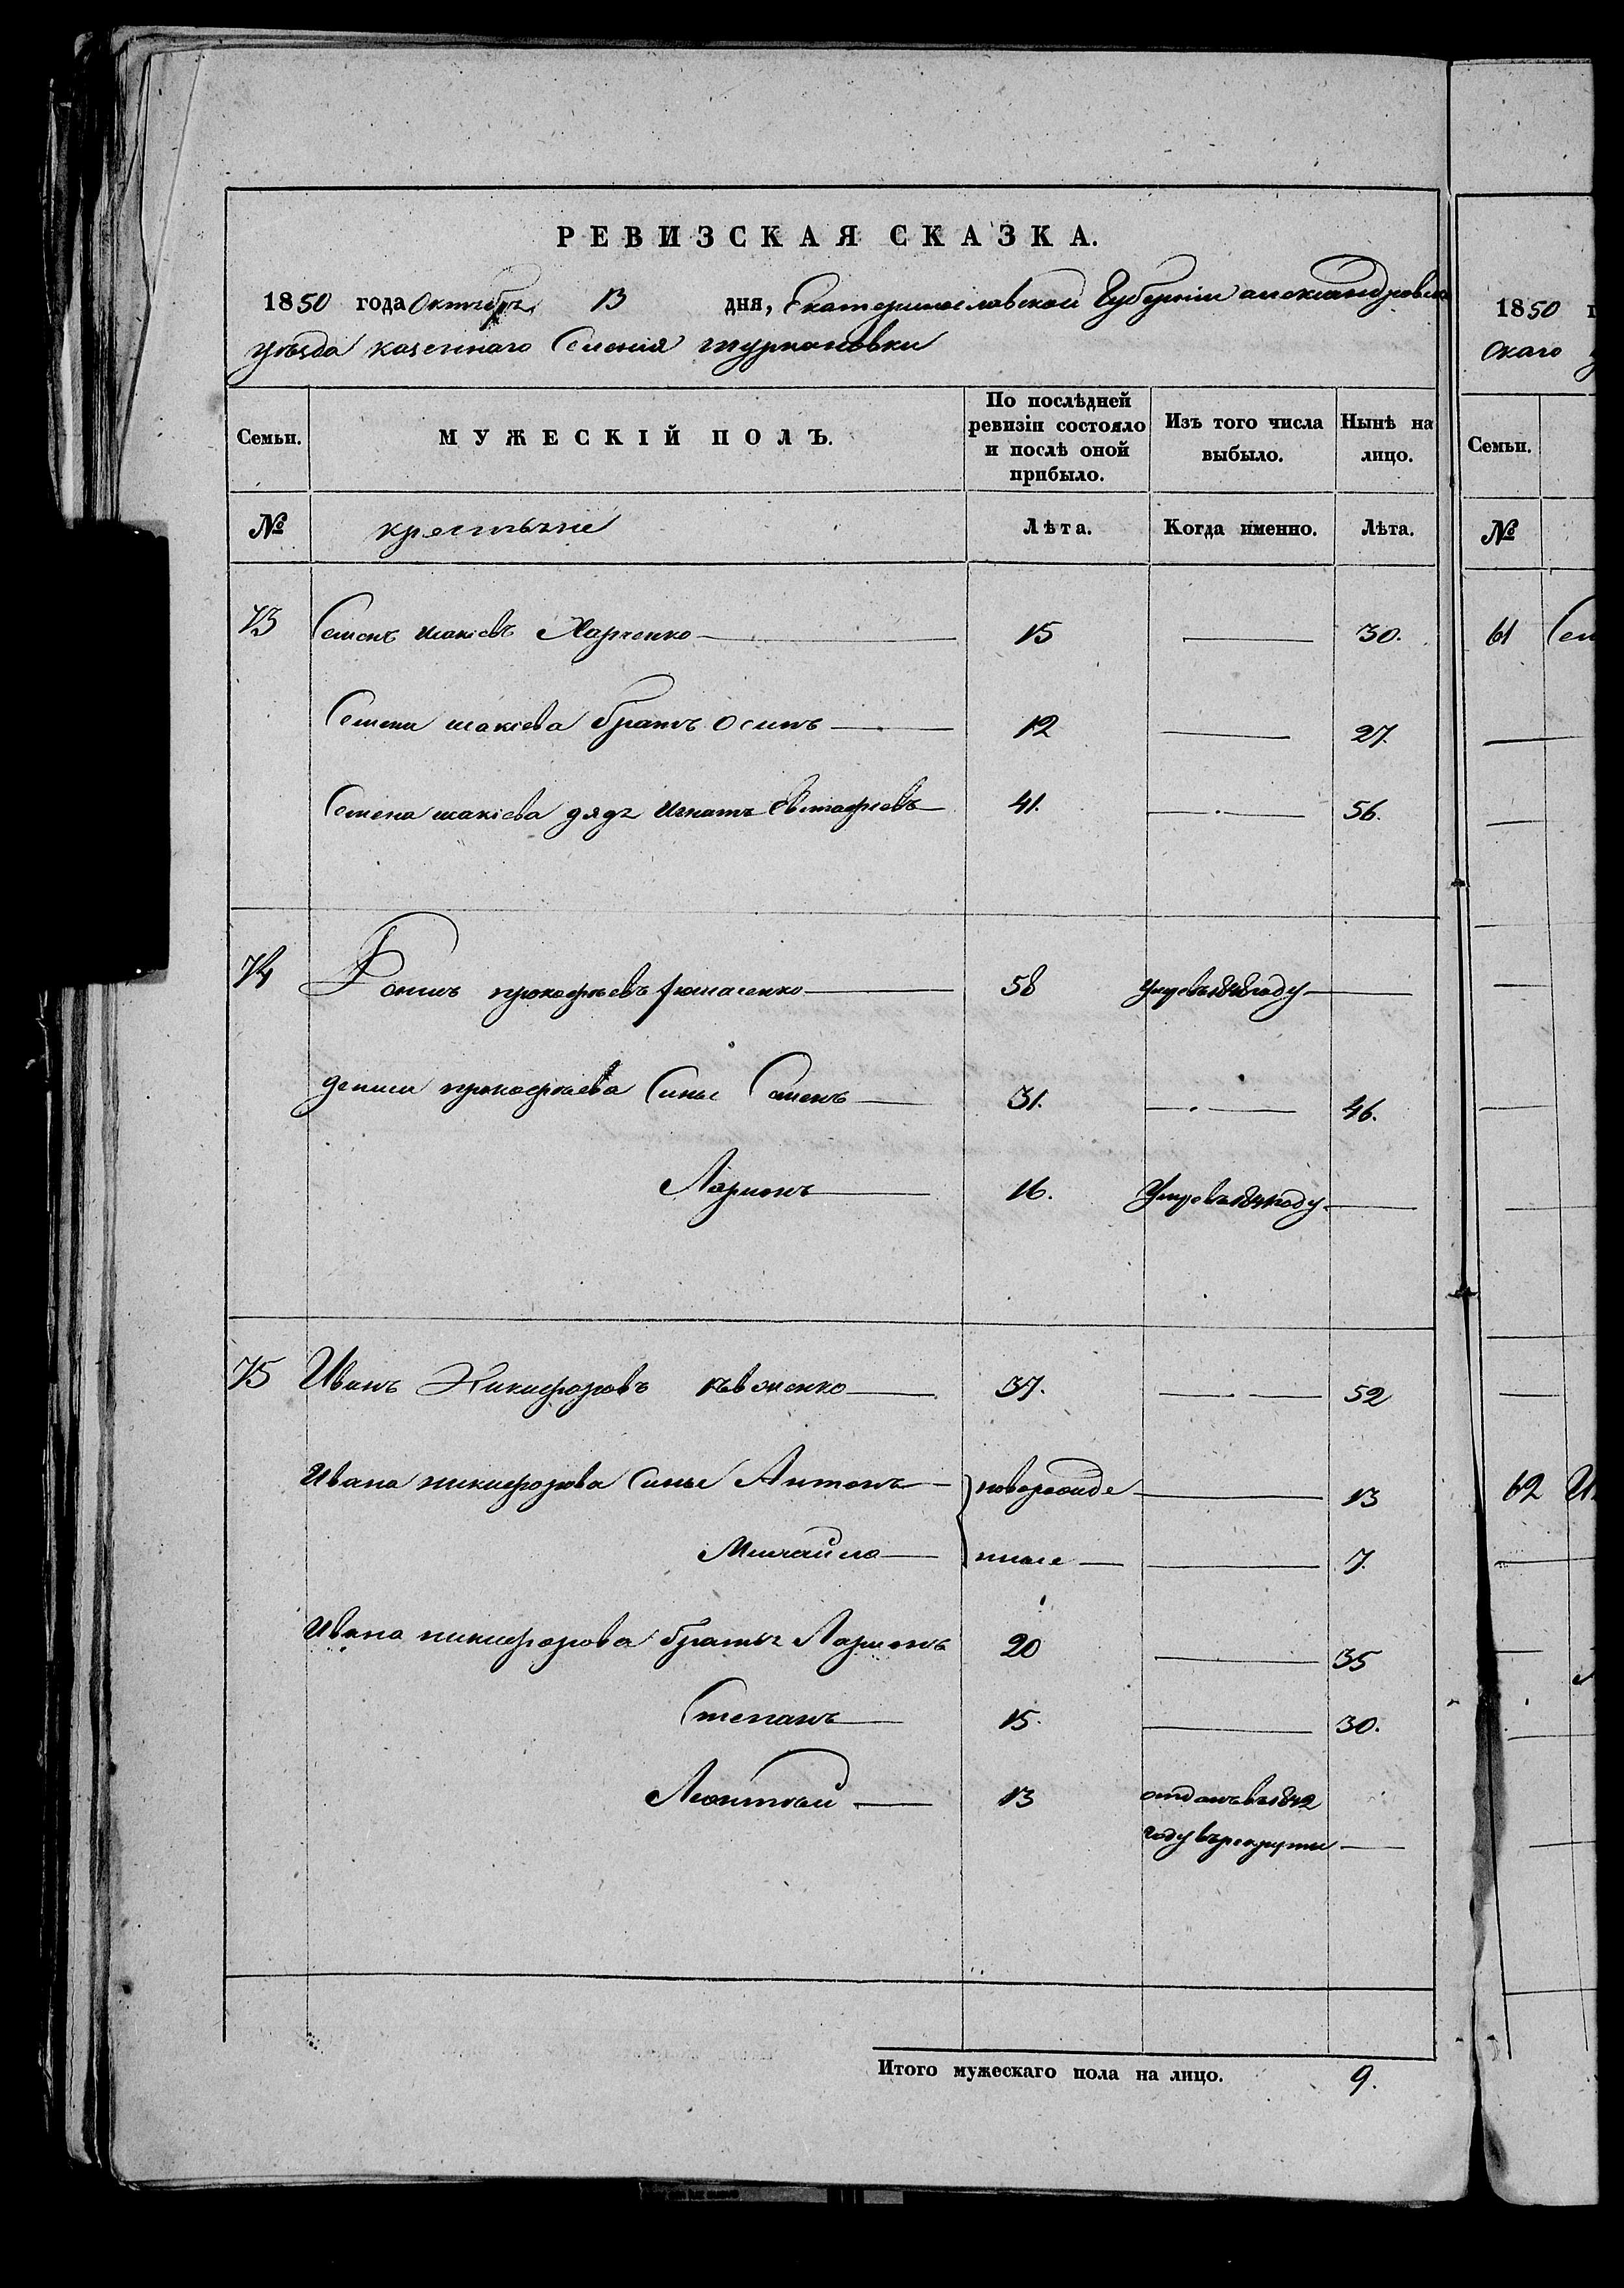 РЕВИЗСКАЯ СКАЗКА.
1850 года Октября 13 дня, Екатеринославской Губернiи александровска
уѣзда казенного Селенiя туркеновки
Семьи. МУЖЕСКІЙ ПОЛЪ. По послѣдней ревизіи состояло и послѣ оной прибыло. Изъ того числа выбыло. Нынѣ на лицо.
№ крестьяне Лѣта. Когда именно. Лѣта.
73 Семенъ Харченко 15 30.
Семена братъ Осипъ 12 27.
Семена дядя Игнатъ Евтафіевъ 41. 56.
74 прокофьевъ 58 Умре въ 1848 году
дениса прокофьева Сынъ Семенъ 31. 46.
Ларионъ 16. Умре въ 1841 году
75 Иванъ Никифоровъ 37. 52
Ивана никифорова Сынъ Антонъ новорожде 13
Михайло нные 7.
Ивана никифорова братья Ларионъ 20 35
Степанъ 15. 30.
Леонтьей 13 отданъ въ 1842
году въ рекруты
Итого мужескаго пола на лицо. 9.
1850 г
скаго
Семьи.
№
61 Сем
62 И